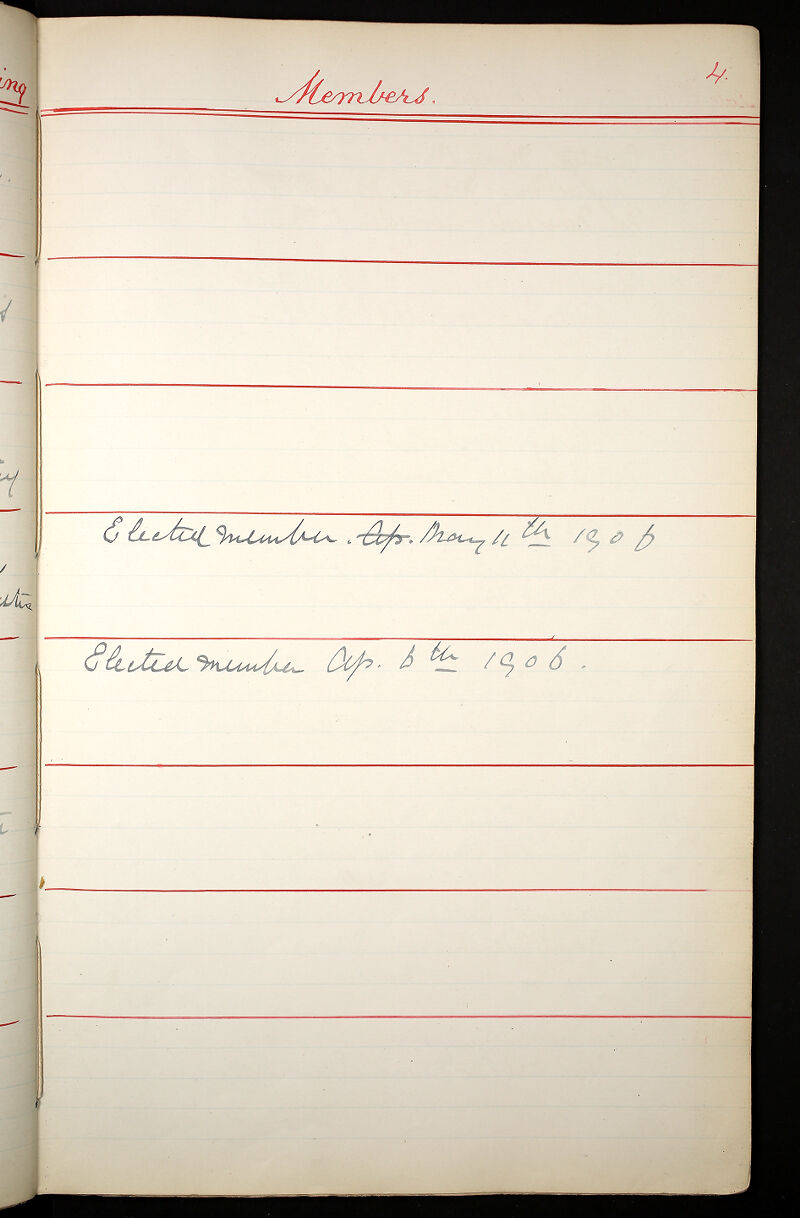 ing
Members. 4.
Elected member. Ap. May 11th 1906
Elected member Ap. 6th 1906.